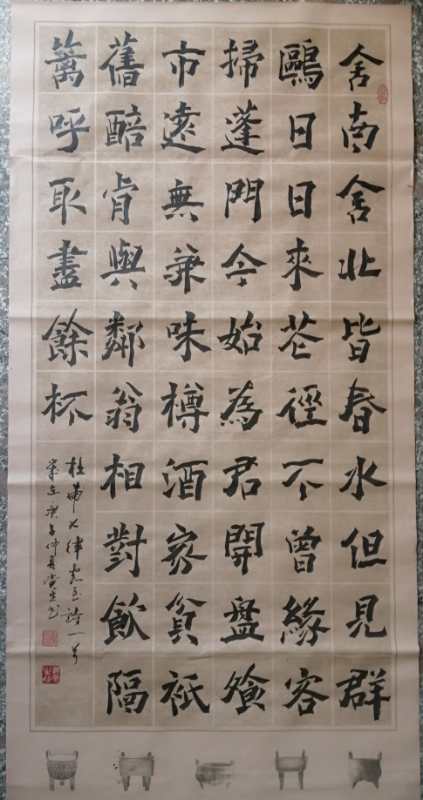 舍南舍北皆春水但見群
鷗日日來花徑不曾緣客
掃蓬門今始為君開盤飱
市遠無兼味樽酒家貧衹
舊醅肯與鄰翁相對飲隔
籬呼取盡餘杯
杜甫七律客至詩一首
歲在庚子仲夏